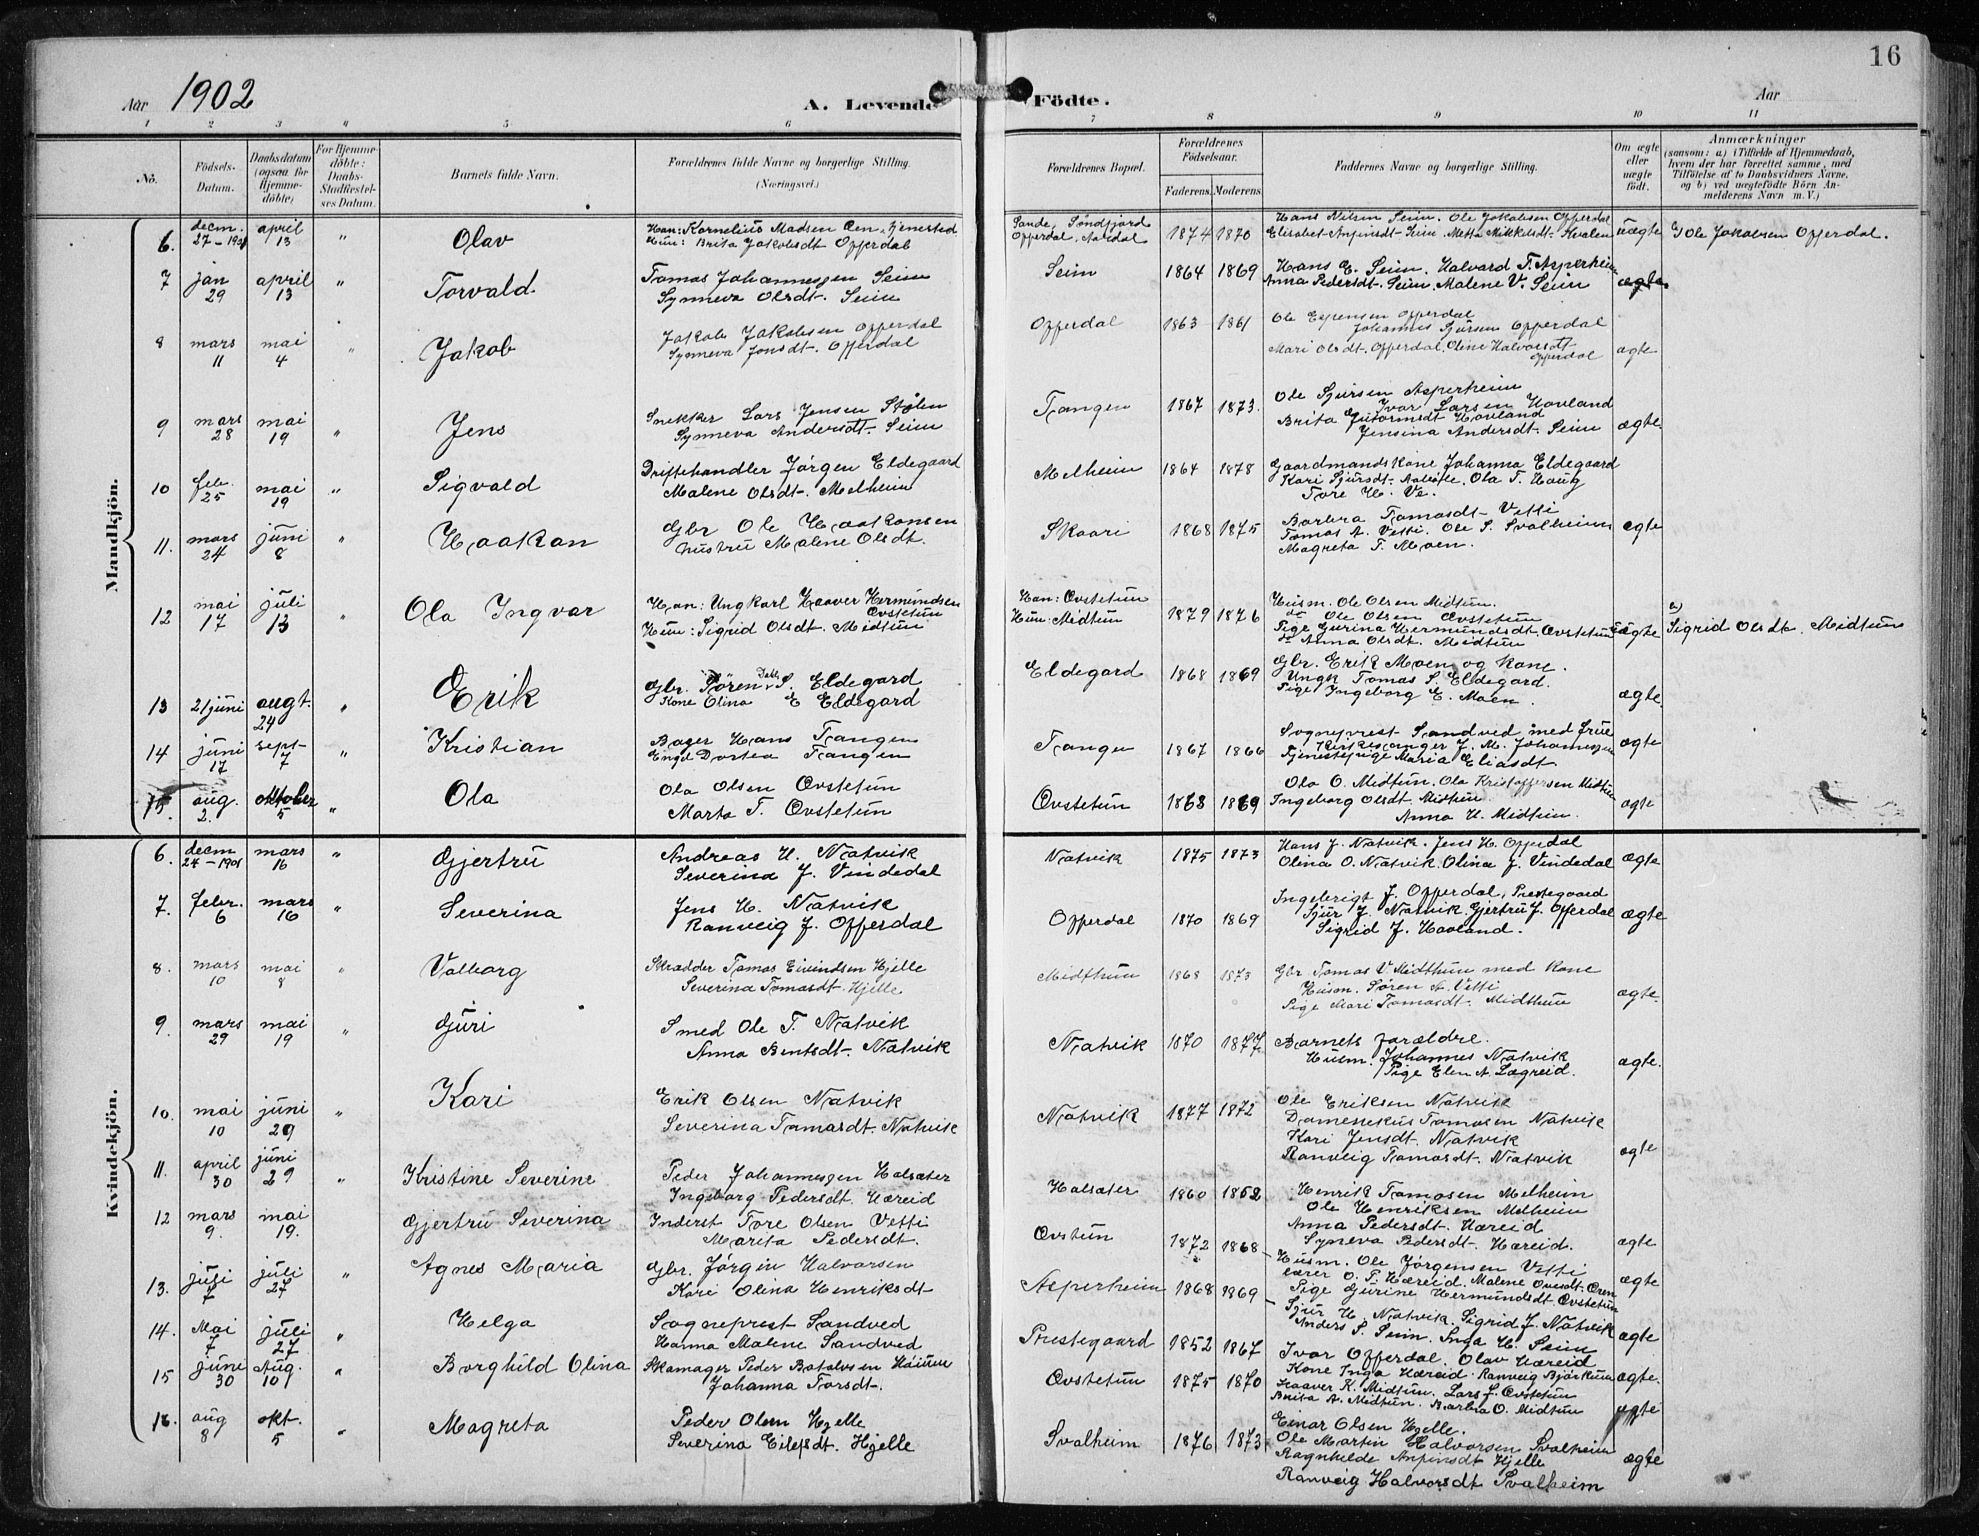 16
Aar 1902
A. Levende Födte.
Aar
1 2 3 " 5 6 7 8 9 10 11
No.
Födsels-Datum.
Daabsdatum (ogsaa for Hjemme-döbte)
For Hjemme-döbte: Daabs-Stadfæstel-ses Datum.
Barnets fulde Navn.
Forældrenes fulde Navne og borgerlige Stilling. (Næringsvei.)
Forældrenes Bopæl.
Forældrenes Födselsaar.
Faderens. Moderens.
Faddernes Navne og borgerlige Stilling.
Om ægte eller uægte födt.
Anmærkninger
(saasom: a) i Tilfælde af Hjemmedaab, hvem der har forrettet samme, med Tilföielse af to Daabsvidners Navne, og b) ved uægtefödte Börn An-melderens Navn m. V.)
Mandkjön.
6. decm. 27-1901 april 13 " Olav
Han: Kornelius Madsen
Hun: Brita Jakobsdt Opperdal
Sande, Söndfjord
Opperdal, Aardal
1874 1870
Hans Nilsen Seim. Ole Jakobsen Opperdal
Elisabet Anfinsdt Seim. Metta Mikkelsdt Kvalen
uægte
Ole Jakobsen Opperdal.
7 jan 29 april 13 " Torvald
Tomas Johannessen Seim
Synneva Olsdt. Seim
Seim 1864 1869
Hans E. Seim. Halvard T. Asperheim
Anna Pedersdt. Seim. Malene V. Seim
ægte
8 mars 11 mai 4 " Jakob
Jakob Jakobsen Opperdal
Synneva Jonsdt. Opperdal
Opperdal 1863 1861
Ole Espensen Opperdal
Johannes Sjursen Opperdal
Mari Olsdt. Opperdal. Oline Halvorsdt Opperdal
ægte
9 mars 28 mai 19 " Jens
Snekker Lars Jensen Stölen
Synneva Andersdt. Seim
Tangen 1867 1873.
Ole Sjursen Asperheim
Ivar Larsen Hovland
Brita Guttormsdt Hovland
Jensina Andersdt. Seim
ægte.
10 febr. 25 mai 19 " Sigvald
Driftehandler Jörgen Eldegaard
Malene Olsdt. Melheim
Melheim 1864 1878
Gaardmandskone Johanna Eldegaard
Kari Sjursdt. Ola T. Haug
Tore H. Ve.
11. mars 24 juni 8 " Haakon
Gbr Ole Haakonsen
hustru Malene Olsdt.
Skaari 1868 1875
Barbra Tomasdt Vetti
Tomas A. Vetti. Ole S. Svalheim
Magreta T. Moen.
ægte
12 mai 17 juli 13 " Ola Ingvar
Han: Ungkarl Haaver Hermundsen Øvstetun
Hun: Sigrid Olsdt. Midtun
Han: Øvstetun
Hun: Midtun
1879 1876
Husm. Ole Olsen Midtun.
do Ole Olsen Øvstetun
Pige Gurina Hermundsdt. Øvstetun
do Anna Olsdt. Midtun
uægte
Sigrid Olsdt. Midtun
13 21 juni augt. 24 " Erik
Gbr. Sören S. Eldegard
Kone Olina E Eldegard
Eldegard 1868 1869
Gbr. Erik Moen og kone.
Ungk Tomas S. Eldegard.
Pige Ingeborg E. Moen.
ægte.
14 juni 17 sept 7 " Kristian
Bager Hans Tangen
Dortea Tangen
Tangen 1867 1866
Sogneprest Sandved med frue
Kirkesanger J. M. Johannessen
Tjenestepige Maria Eliasdt
ægte
15. aug. 2. oktober 5 " Ola
Ola Olsen Øvstetun
Marta T. Øvstetun
Øvstetun 1868 1869
Ola O. Midtun. Ola Kristoffersen Midtun
Ingeborg Olsdt. Midtun
Anna H. Midtun.
ægte
Kvindekjön.
6. decm 24-1901 mars 16 " Gjertru
Andreas H. Natvik
Severina J. Vindedal
Natvik 1875 1873
Hans J. Natvik. Jens H. Opperdal
Olina O. Natvik. Olina J. Vindedal
ægte
7. febr. 6 mars 16 " Severina
Jens H. Natvik
Ranveig J. Opperdal
Opperdal 1870 1869
Ingebrigt J. Opperdal, Prestegaard
Sjur J. Natvik. Gjertru J. Opperdal
Sigrid J. Hovland.
ægte
8. mars 10 mai 8 " Valborg
Skrædder Tomas Eivindsen Hjelle
Severina Tomasdt. Hjelle
Midthun 1868 1873
Gbr Tomas V. Midthun med kone
Husm. Sören A. Vetti
Pige Mari Tomasdt. Midthun
ægte.
9. mars 29 mai 19 " Guri
Smed Ole T. Natvik
Anna Bentsdt. Natvik
Natvik 1870 1877
Barnets forældre.
Husm. Johannes Natvik
Pige Elen A. Lægreid.
ægte.
10. mai 10 juni 29 " Kari
Erik Olsen Natvik
Severina Tomasdt. Natvik
Natvik 1877 1872
Ole Eriksen Natvik
Domenekus Tomasen Natvik
Kari Jensdt. Natvik
Ranveig Tomasdt. Natvik
ægte
11. april 30 juni 29 " Kristine Severine
Peder Johannessen Halsæter
Ingeborg Pedersdt. Hæreid
Halsæter 1860 1852
Henrik Tomasen Melheim
Ole Henriksen Melheim
Anna Pedersdt. Hæreid
Syneva Pedersdt. Hæreid.
ægte
12 mars 9. mai 19. Gjertru Severina
Inderst Tore Olsen Vetti
Marita Pedersdt.
Øvstun 1872 1868
Husm. Ole Jörgensen Vetti
Lærer O. T. Hæreid. Malene Øren
Pige Gurine Hermundsdt Øvstetun
ægte
13. juli 7 juli 27 " Agnes Maria
Gbr. Jörgen Halvorsen
Kari Olina Henriksdt
Asperheim 1868 1869
Sjur H. Natvik. Sigrid J. Natvik
Anders S. Seim. Inga H. Seim
ægte
14. Mai 7 juli 27 " Helga
Sogneprest Sandved
Hanna Malene Sandved
Prestegaard 1852 1867
Ivar Opperdal. Olav Hæreid
Kone Inga Hæreid. Ranveig Bjorkum
ægte.
15 juni 30 Aug. 10 " Borghild Olina
Skomager Peder Haium
Johanna Torsdt.
Øvstetun 1875 1870
Haaver K. Midtun. Lars J. Øvstetun
Brita A. Midtun. Barbra O. Midtun
ægte
16. aug 8 okt. 5 " Magreta
Peder Olsen Hjelle
Severina Eilefsdt. Hjelle
Svalheim 1876 1873
Einar Olsen Hjelle.
Ole Martin Halvorsen Svalheim
Ragnhilde Anfinsdt Hjelle
Ranveig Halvorsdt Svalheim
ægte